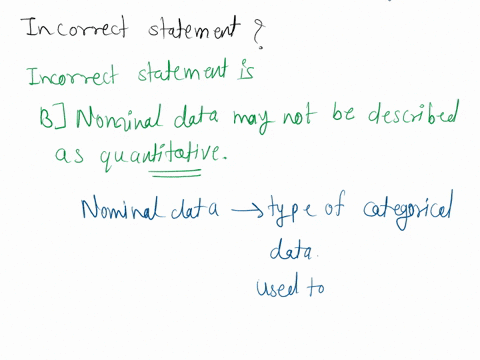 Incorrect statement?
Incorrect statement is
B] Nominal data may not be described
as quantitative.
Nominal data → type of categorical
data.
used to